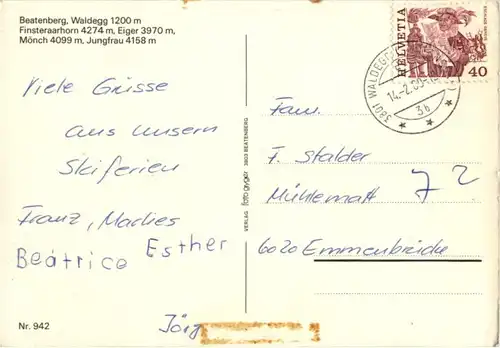 Beatenberg, Waldegg 1200 m
Finsteraarhorn 4274 m, Eiger 3970 m,
Mönch 4099 m, Jungfrau 4158 m
Viele Grüsse
aus unsern
Skiferien
Franz, Marlies
Esther
Beatrice
Jörg
Nr. 942
VERLAG foto gyger 3803 BEATENBERG
HELVETIA
40
3801 WALDEGG
14.-2.80
3b
Fam.
F. Stalder
Mühlematt 72
6020 Emmenbrücke